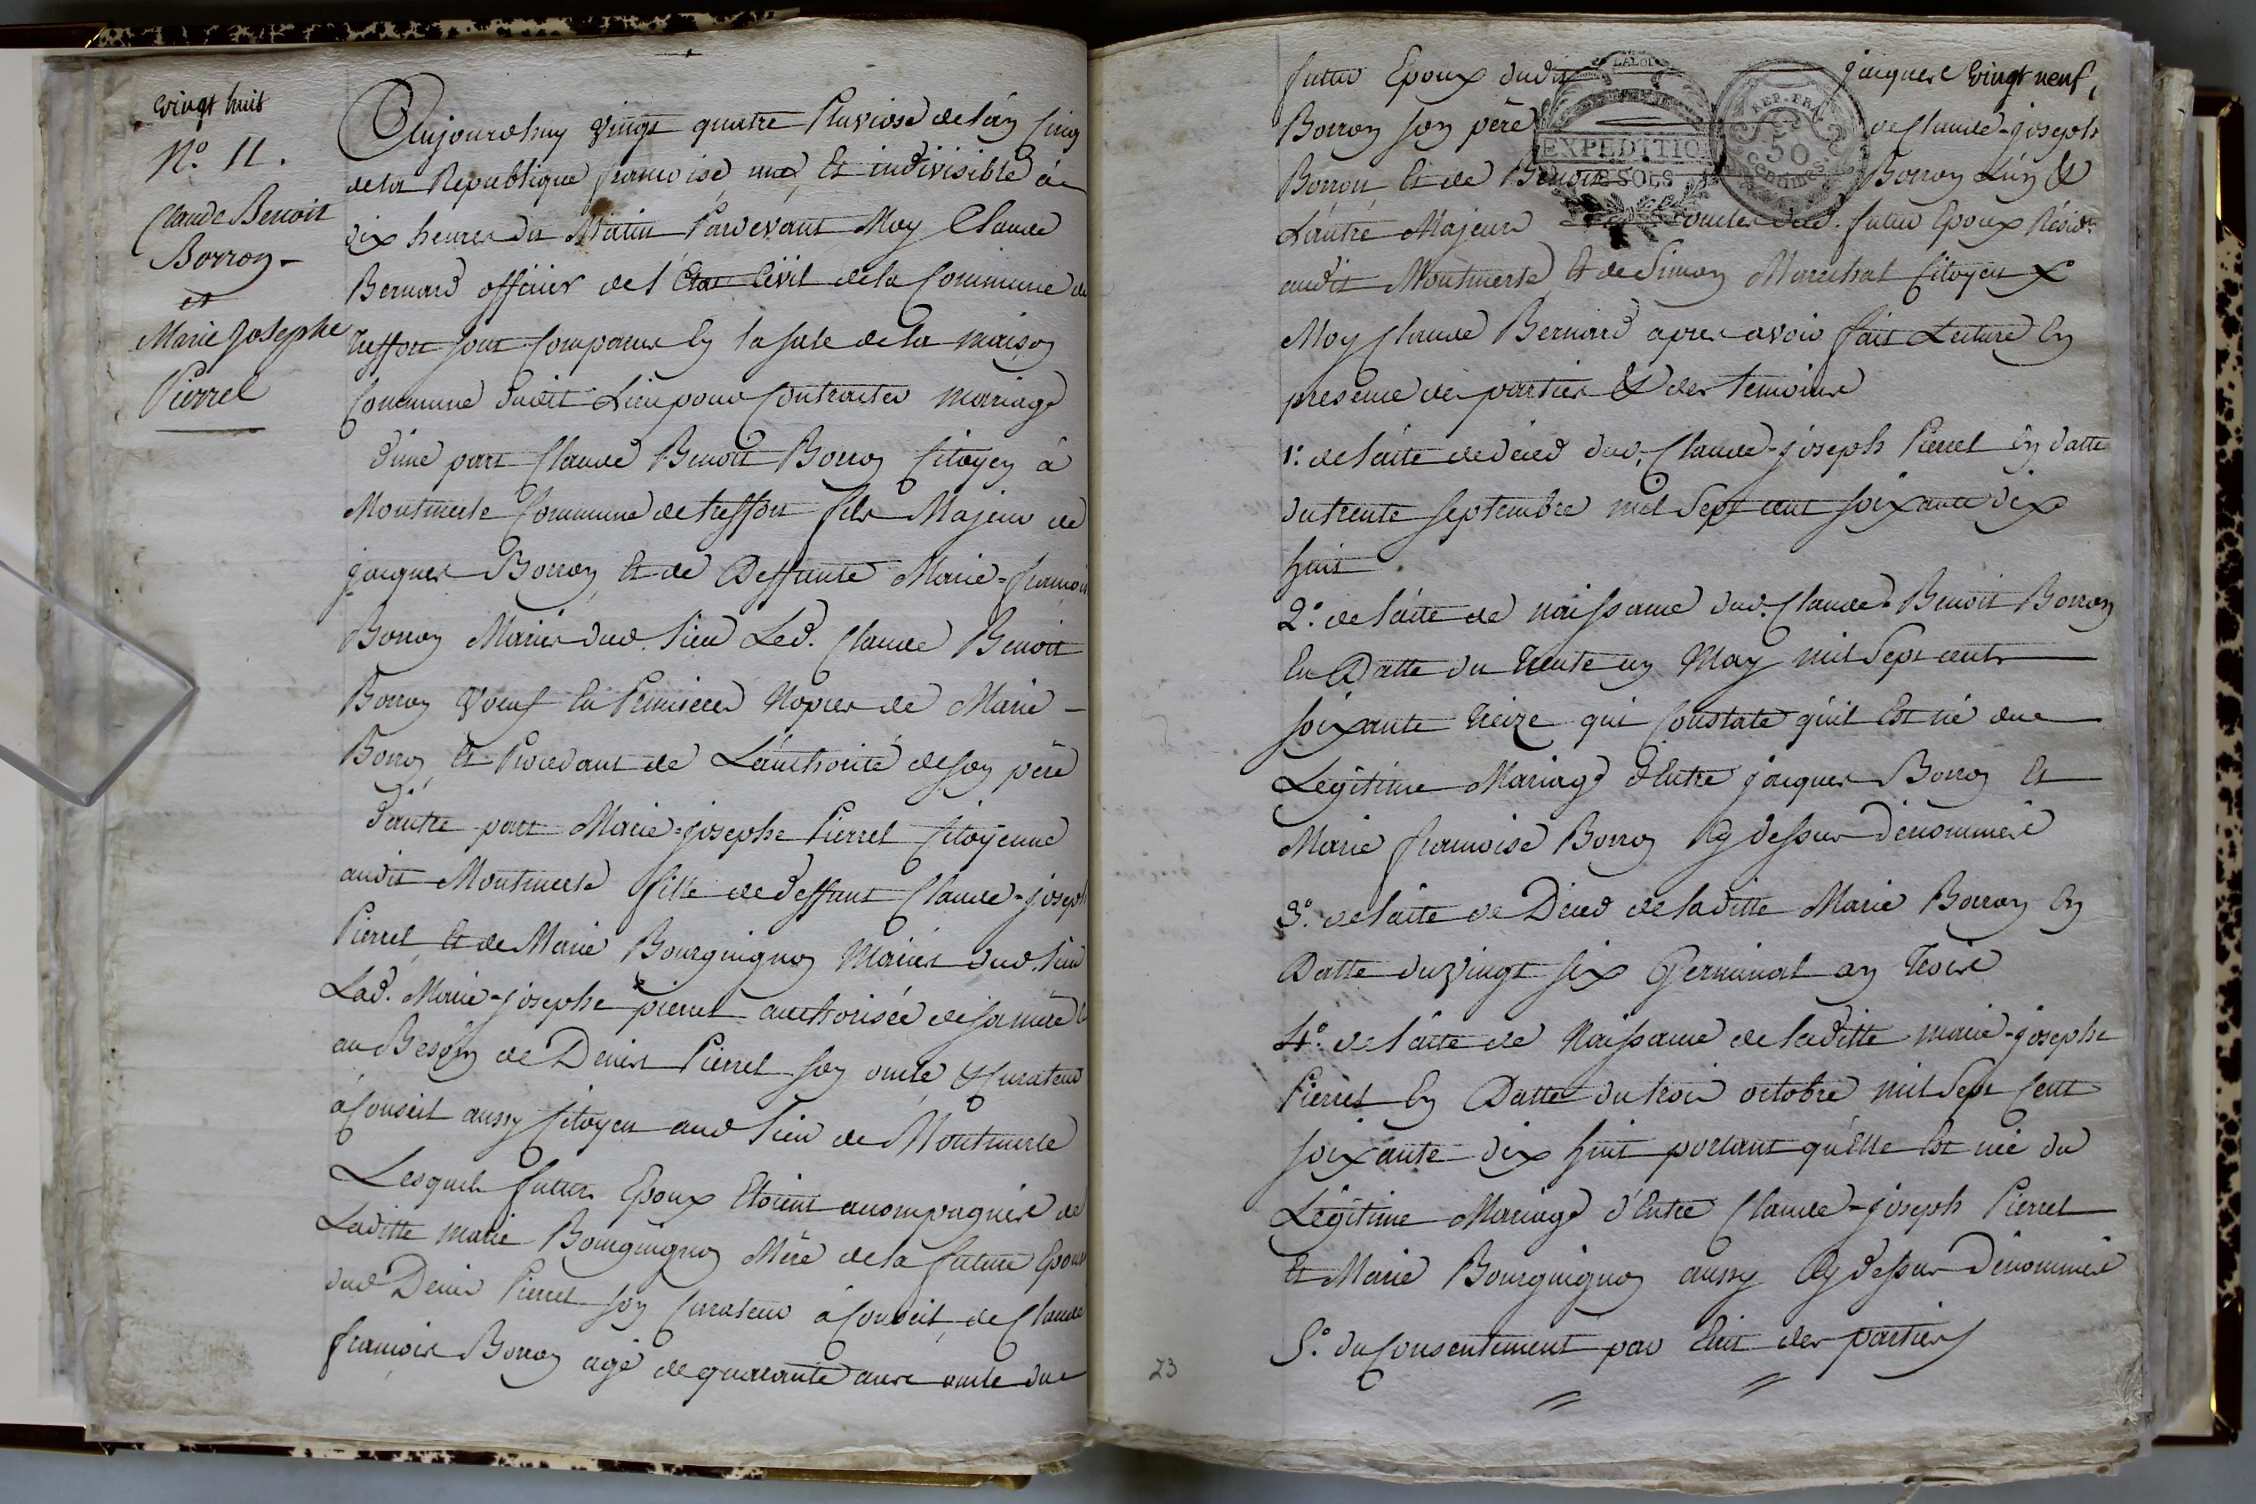 vingt huit
N.o 11.
Claude Benoit
Borron
et
Marie Josephe
Pierrel
Aujourdhuy vingt quatre Pluviose de l'an Cinq
de la Republique francoise une Et indivisible à
dix heures du Matin Pardevant Moy Claude
Bernard officier de l'Etat Civil de la Commune de
treffort sont comparus En la sale de la maison
Commune dudit Lieu pour Contracter mariage
d'une part Claude Benoit Borron Citoyen à
Montmerle Commune de treffort fils Majeur de
jacques Borron, Et de Deffunte Marie=francoise
Borron Mariés dud. Lieu Led. Claude Benoit
Borron Veuf En Premieres Nopces de Marie
Borron, Et Procedant de L'authorité de son père
d'autre part Marie=josephe Pierrel Citoyenne
audit Montmerle fille de deffunt Claude=joseph
Pierrel Et de Marie Bourguignon Mariés dud. Lieu
Lad. Marie=josephe pierrel authorisée de sa mère &
au Besoin de Denis Pierrel son oncle & Curateur
à Conseil aussy Citoyen aud Lieu de Montmerle
Lesquels futurs Epoux Etoient accompagnés de
Laditte marie Bourguignon Mère de la future Epouse
dud Denis Pierrel son Curateur à Conseil, de Claude
françois Borron agé de quarante ans oncle du
futur Epoux dudit jacques vingt neuf
Borron son père de Claude=joseph
Borron Et de Benoit Borron L'un &
L'autre Majeurs oncles dud. futur Epoux Résidt
audit Montmerle Et de Simon Marechal Citoyen
Moy Claude Bernard apres avoir fait Lecture En
presence des parties & des temoins
1.o de l'acte de déces dud. Claude=joseph Pierrel En datte
du trente septembre mil Sept cent soixante dix
huit
2.o de l'acte de naissance dud. Claude=Benoit Borron
En Datte du trente un May mil Sept cents
soixante treize qui Constate qu'il Est né du
Légitime Mariage d'Entre jacques Borron Et
Marie francoise Borron Cy dessus dénommés
3.o de l'acte de Décès de laditte Marie Borron En
Datte du vingt six Germinal an trois
4.o de l'acte de Naissance de laditte marie=josephe
Pierrel En Datte du trois octobre mil Sept Cent
soixante dix huit portant qu'elle Est née du
Légitime Mariage d'Entre Claude=joseph Pierrel
Et Marie Bourguignon aussy Cy dessus Dénommés
5.o du Consentement par Ecrit des parties
LA LOI
EXPEDITION
SOLS
REP. FRA
50
centimes
23